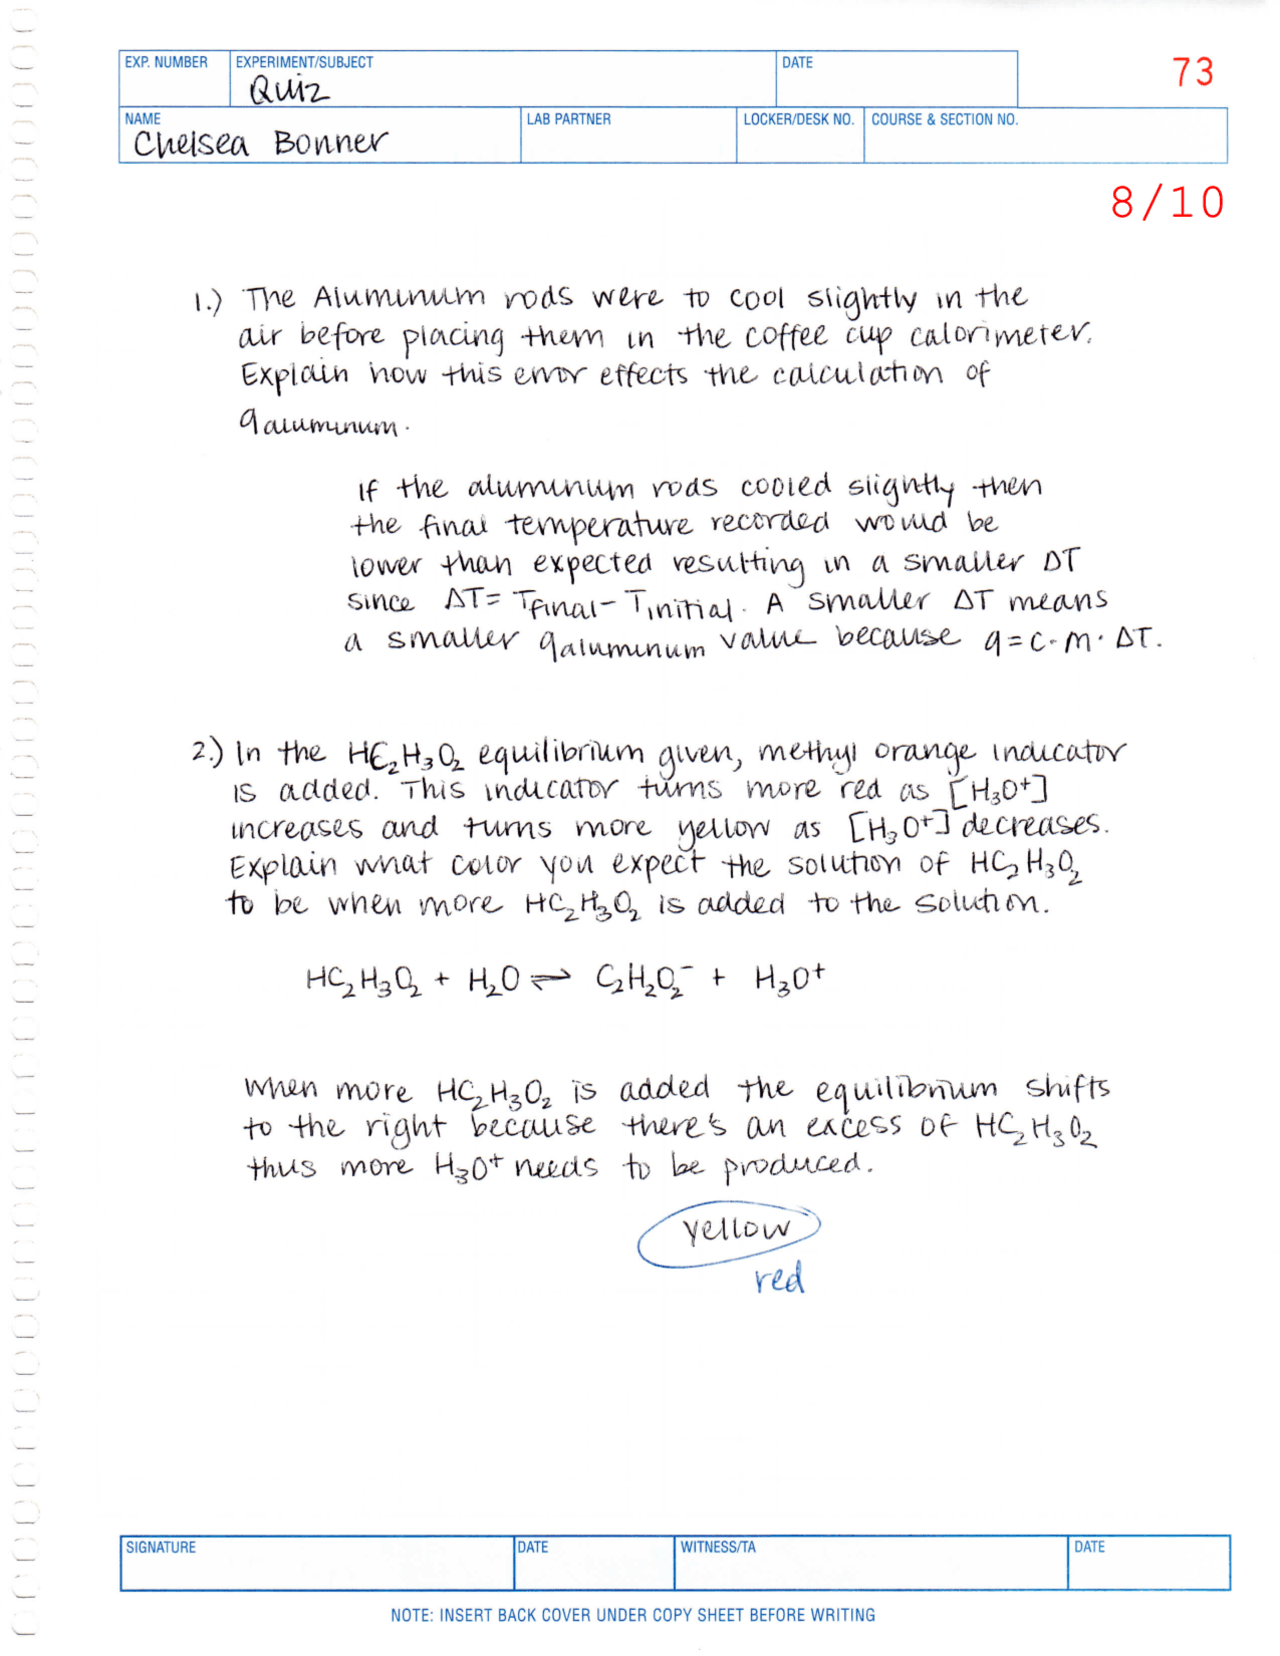 EXP. NUMBER EXPERIMENT/SUBJECT DATE 73
Quiz
NAME LAB PARTNER LOCKER/DESK NO. COURSE & SECTION NO.
Chelsea Bonner
8/10
1.) The Aluminum rods were to cool slightly in the
air before placing them in the coffee cup calorimeter.
Explain how this error effects the calculation of
qaluminum.
If the aluminum rods cooled slightly then
the final temperature recorded would be
lower than expected resulting in a smaller ΔT
since ΔT= Tfinal - Tinitial. A smaller ΔT means
a smaller qaluminum value because q=c·m·ΔT.
2.) In the HC₂H₃O₂ equilibrium given, methyl orange indicator
is added. This indicator turns more red as [H₃O⁺]
increases and turns more yellow as [H₃O⁺] decreases.
Explain what color you expect the solution of HC₂H₃O₂
to be when more HC₂H₃O₂ is added to the solution.
HC₂H₃O₂ + H₂O ⇌ C₂H₂O₂⁻ + H₃O⁺
When more HC₂H₃O₂ is added the equilibrium shifts
to the right because there's an excess of HC₂H₃O₂
thus more H₃O⁺ needs to be produced.
yellow
red
SIGNATURE DATE WITNESS/TA DATE
NOTE: INSERT BACK COVER UNDER COPY SHEET BEFORE WRITING